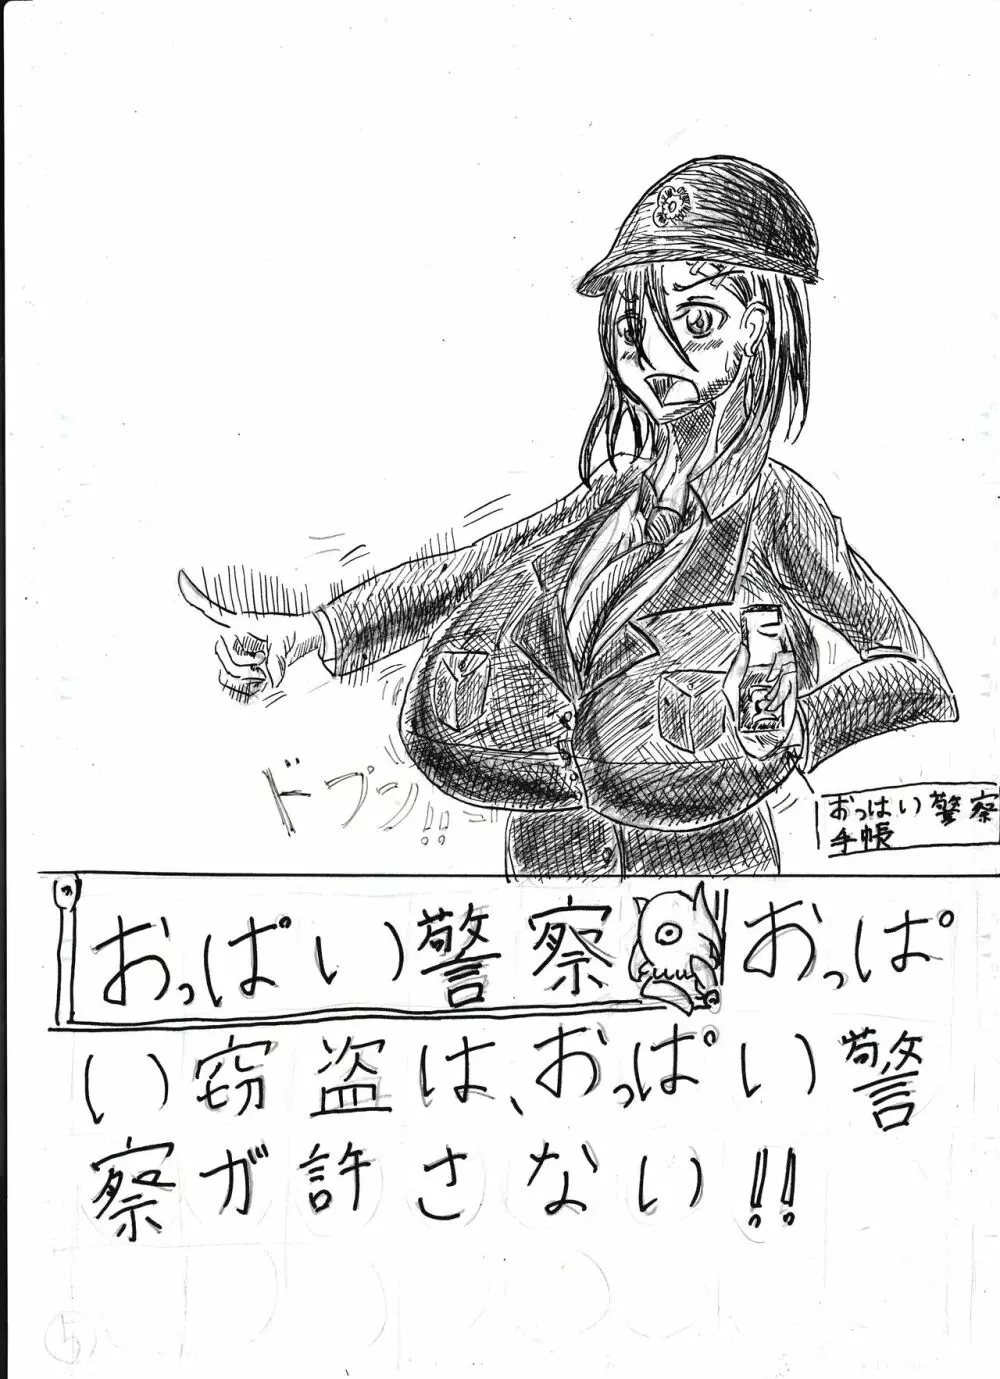 ドプン!!
おっぱい警察
手帳
おっぱい警察 おっぱ
い窃盗は、おっぱい警
察が許さない!!
5